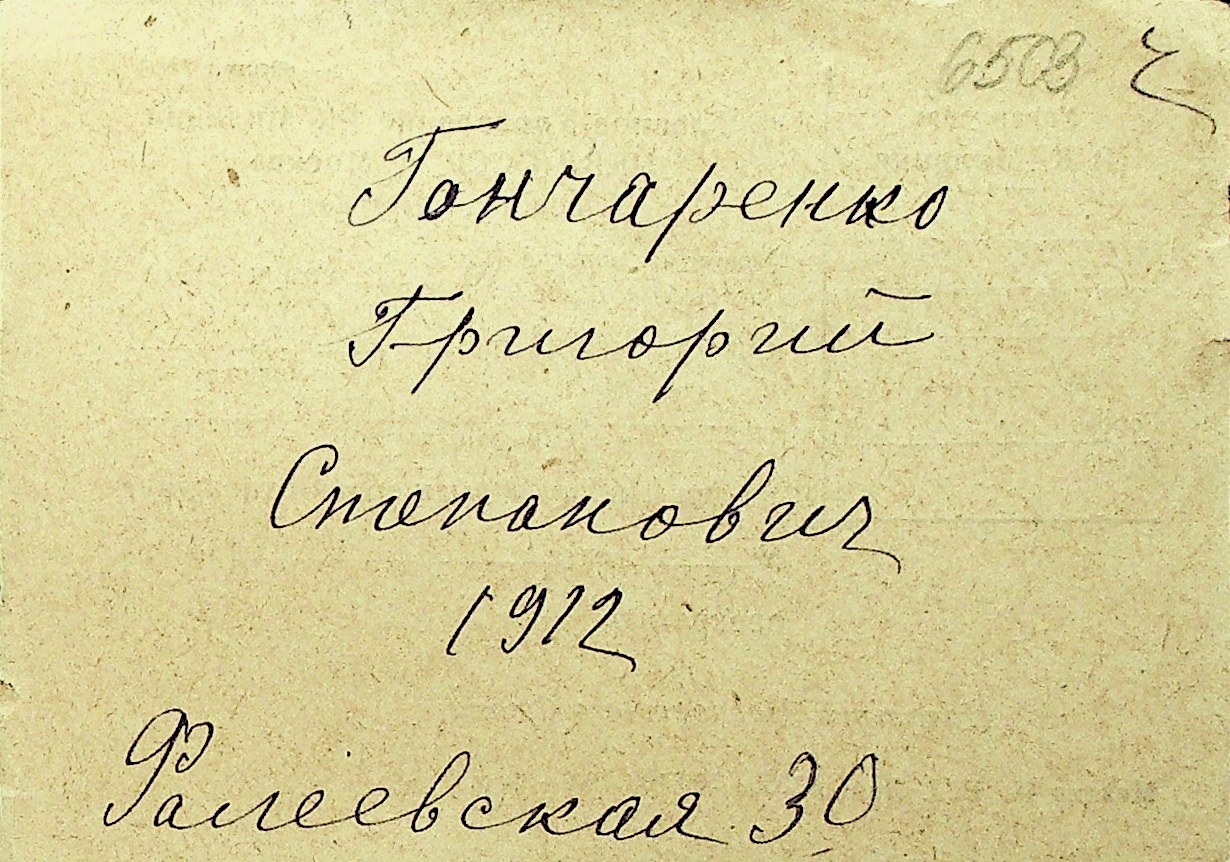 6503 ч
Гончаренко
Григорий
Степанович
1912
Фалеевская 30